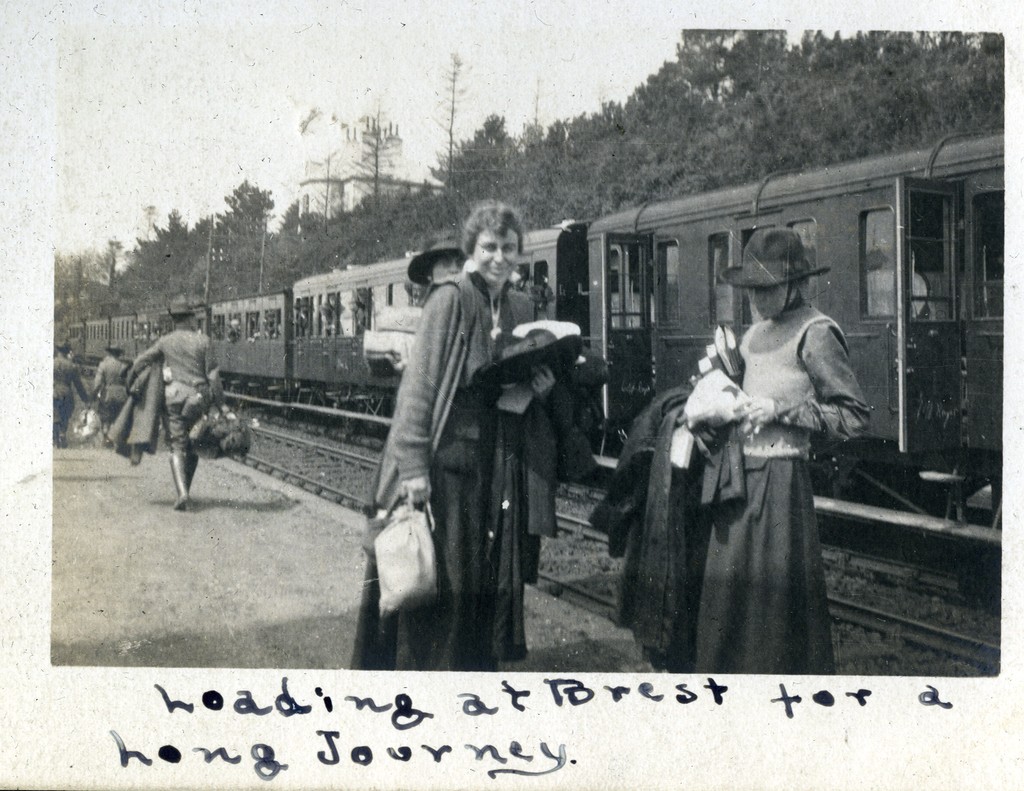 Loading at Brest for a
Long Journey.